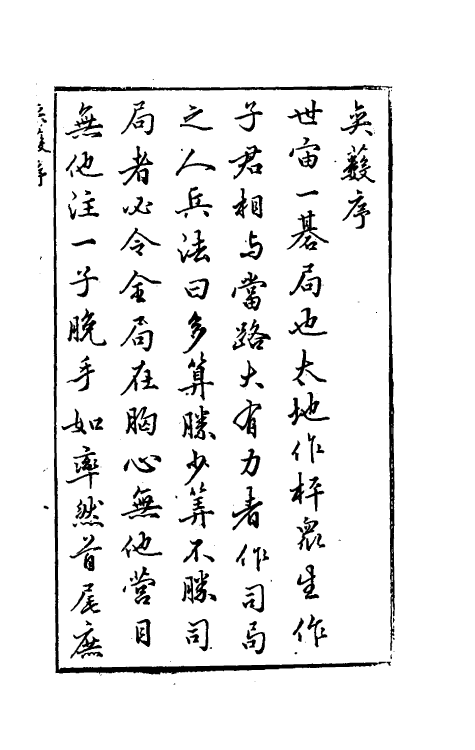 奕藪序
世宙一碁局也太地作枰眾生作
子君相与當路大有力者作司局
之人兵法曰多算勝少算不勝司
局者必令全局在胸心無他營目
無他注一子脫手如率然首尾庶
奕藪序